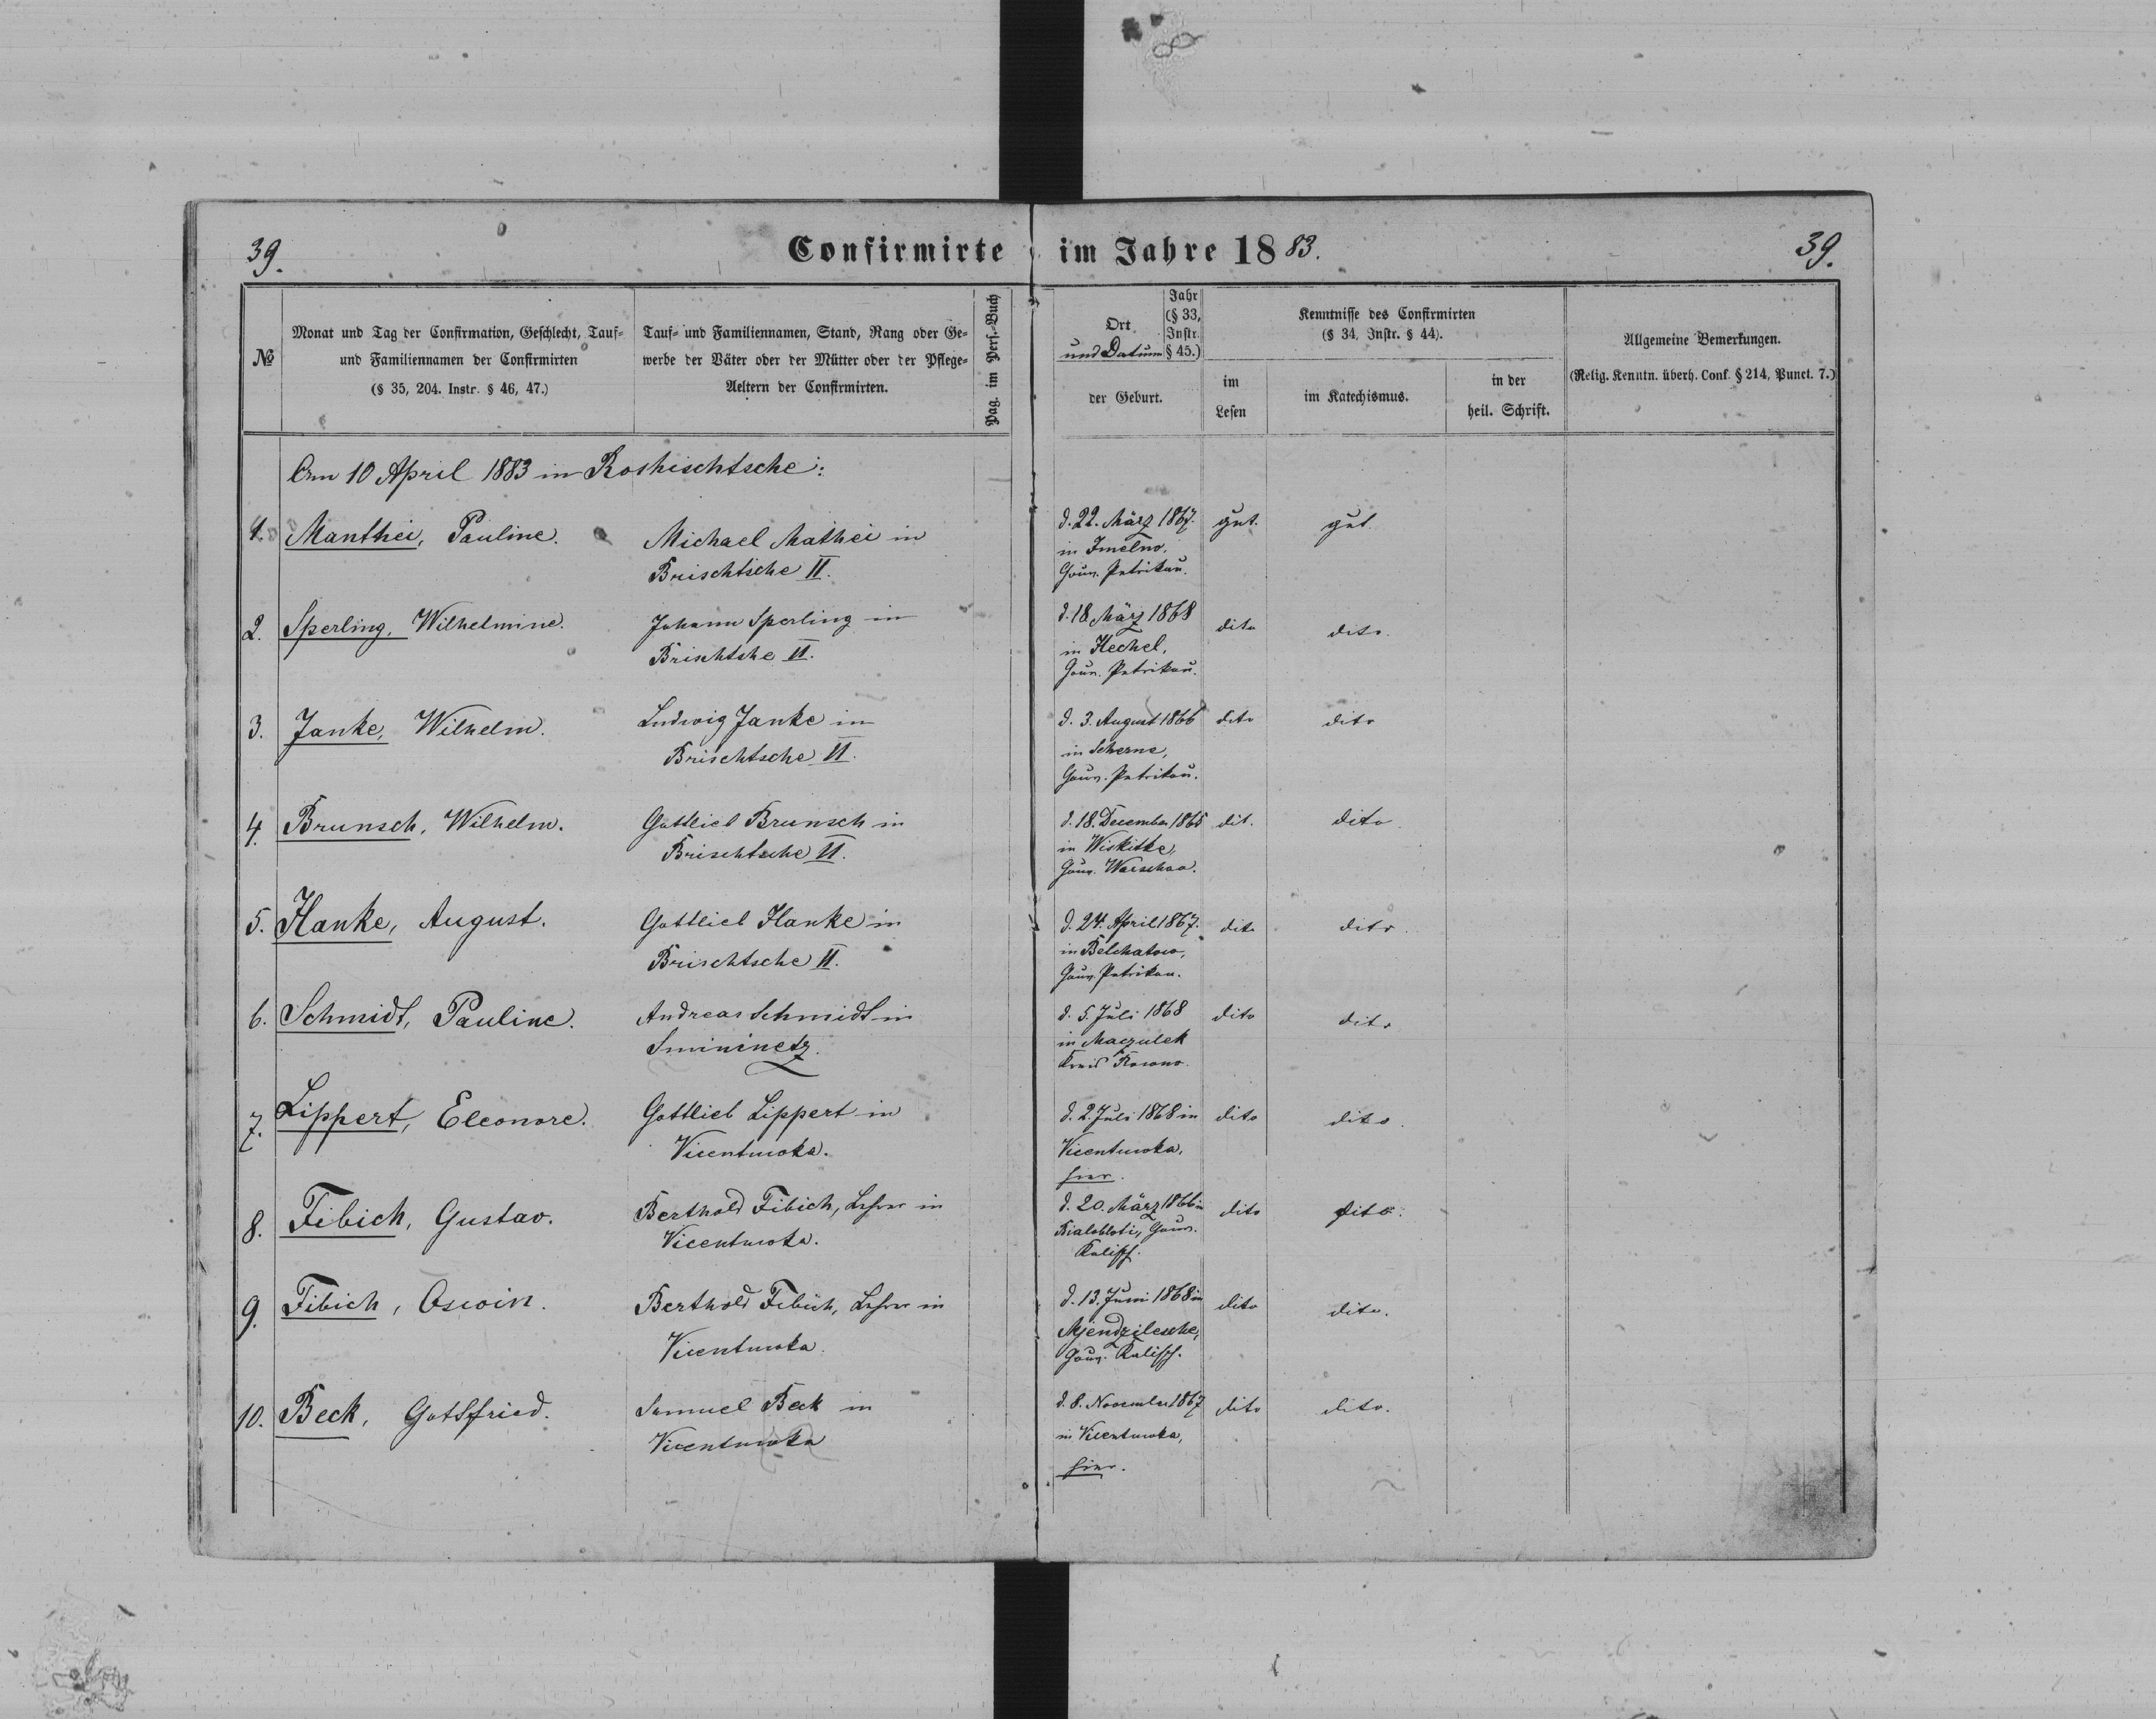 39.
Confirmirte im Jahre 1883.
39.
№
Monat und Tag der Confirmation, Geschlecht, Tauf-
und Familiennamen der Confirmirten
(§ 35, 204. Instr. § 46, 47.)
Tauf- und Familiennamen, Stand, Rang oder Ge-
werbe der Väter oder der Mütter oder der Pflege-
Aeltern der Confirmirten.
Pag. im Pers.-Buch
Ort
und Datum
Jahr
(§ 33,
Instr.
§ 45.)
der Geburt.
Kenntnisse des Confirmirten
(§ 34, Instr. § 44).
im
Lesen
im Katechismus.
in der
heil. Schrift.
Allgemeine Bemerkungen.
(Relig. Kenntn. überh. Conf. § 214, Punct. 7.)
Am 10 April 1883 in Roshischtsche:
1. Manthei, Pauline.
Michael Mathei in
Brischtsche II.
d. 22. März 1867.
in Imelno,
Gouv. Petrikau.
gut.
gut
2. Sperling, Wilhelmine.
Johann Sperling in
Brischtshe II.
d. 18. März 1868
in Hechel,
Gouv. Petrikau.
dito
dito.
3. Janke, Wilhelm.
Ludwig Janke in
Brischtsche II.
d. 3. August 1866
in Scherne,
Gouv. Petrikau.
dito
dito
4. Brunsch, Wilhelm.
Gottlieb Brunsch in
Brischtsche II.
d. 18. December 1865
in Wiskitke,
Gouv. Warschau.
dit.
dito.
5. Hanke, August.
Gottlieb Hanke in
Brischtsche II.
d. 24. April 1867.
in Belchatow,
Gouv. Petrikau.
dito
dito.
6. Schmidt, Pauline.
Andreas Schmidt in
Smininetz.
d. 5. Juli 1868
in Maczulek
Kreis Rowno.
dito
dito
7. Lippert, Eleonore.
Gottlieb Lippert in
Vicentuwka.
d. 2. Juli 1868 in
Vicentuwka,
hier.
dito
dito.
8. Fibich, Gustav.
Berthold Fibich, Lehrer in
Vicentuwka.
d. 20. März 1866 in
Bialobloti, Gouv.
Kalisch.
dito
dito.
9. Fibich, Oswin.
Berthold Fibich, Lehrer in
Vicentuwka.
d. 13. Juni 1868 in
Mjendzilesche,
Gouv. Kalisch.
dito
dito.
10. Beck, Gottfried.
Samuel Beck in
Vicentuwka
d. 8. November 1867
in Vicentuwka,
hier.
dito
dito.